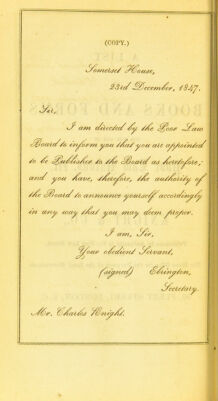 (COPY.)
Somerset House,
23rd December, 1847.
Sir,
I am directed by the Poor Law
Board to inform you that you are appointed
to be Publisher to the Board as heretofore;
and you have, therefore, the authority of
the Board to announce yourself accordingly
in any way that you may deem proper.
I am, Sir,
Your obedient Servant,
(signed) Ebrington,
Secretary.
Mr. Charles Knight.